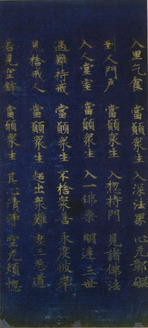 入里乞食　當願衆生　入深法界　心无鄣礙
到人門戶　當願衆生　入揔持門　見諸佛法
入人堂室　當願衆生　入一佛乘　明達三世
遇難持戒　當願衆生　不捨衆善　永度彼岸
見捨戒人　當願衆生　超出衆難　度三惡道
若見空鉢　當願衆生　其心清淨　空无煩惱